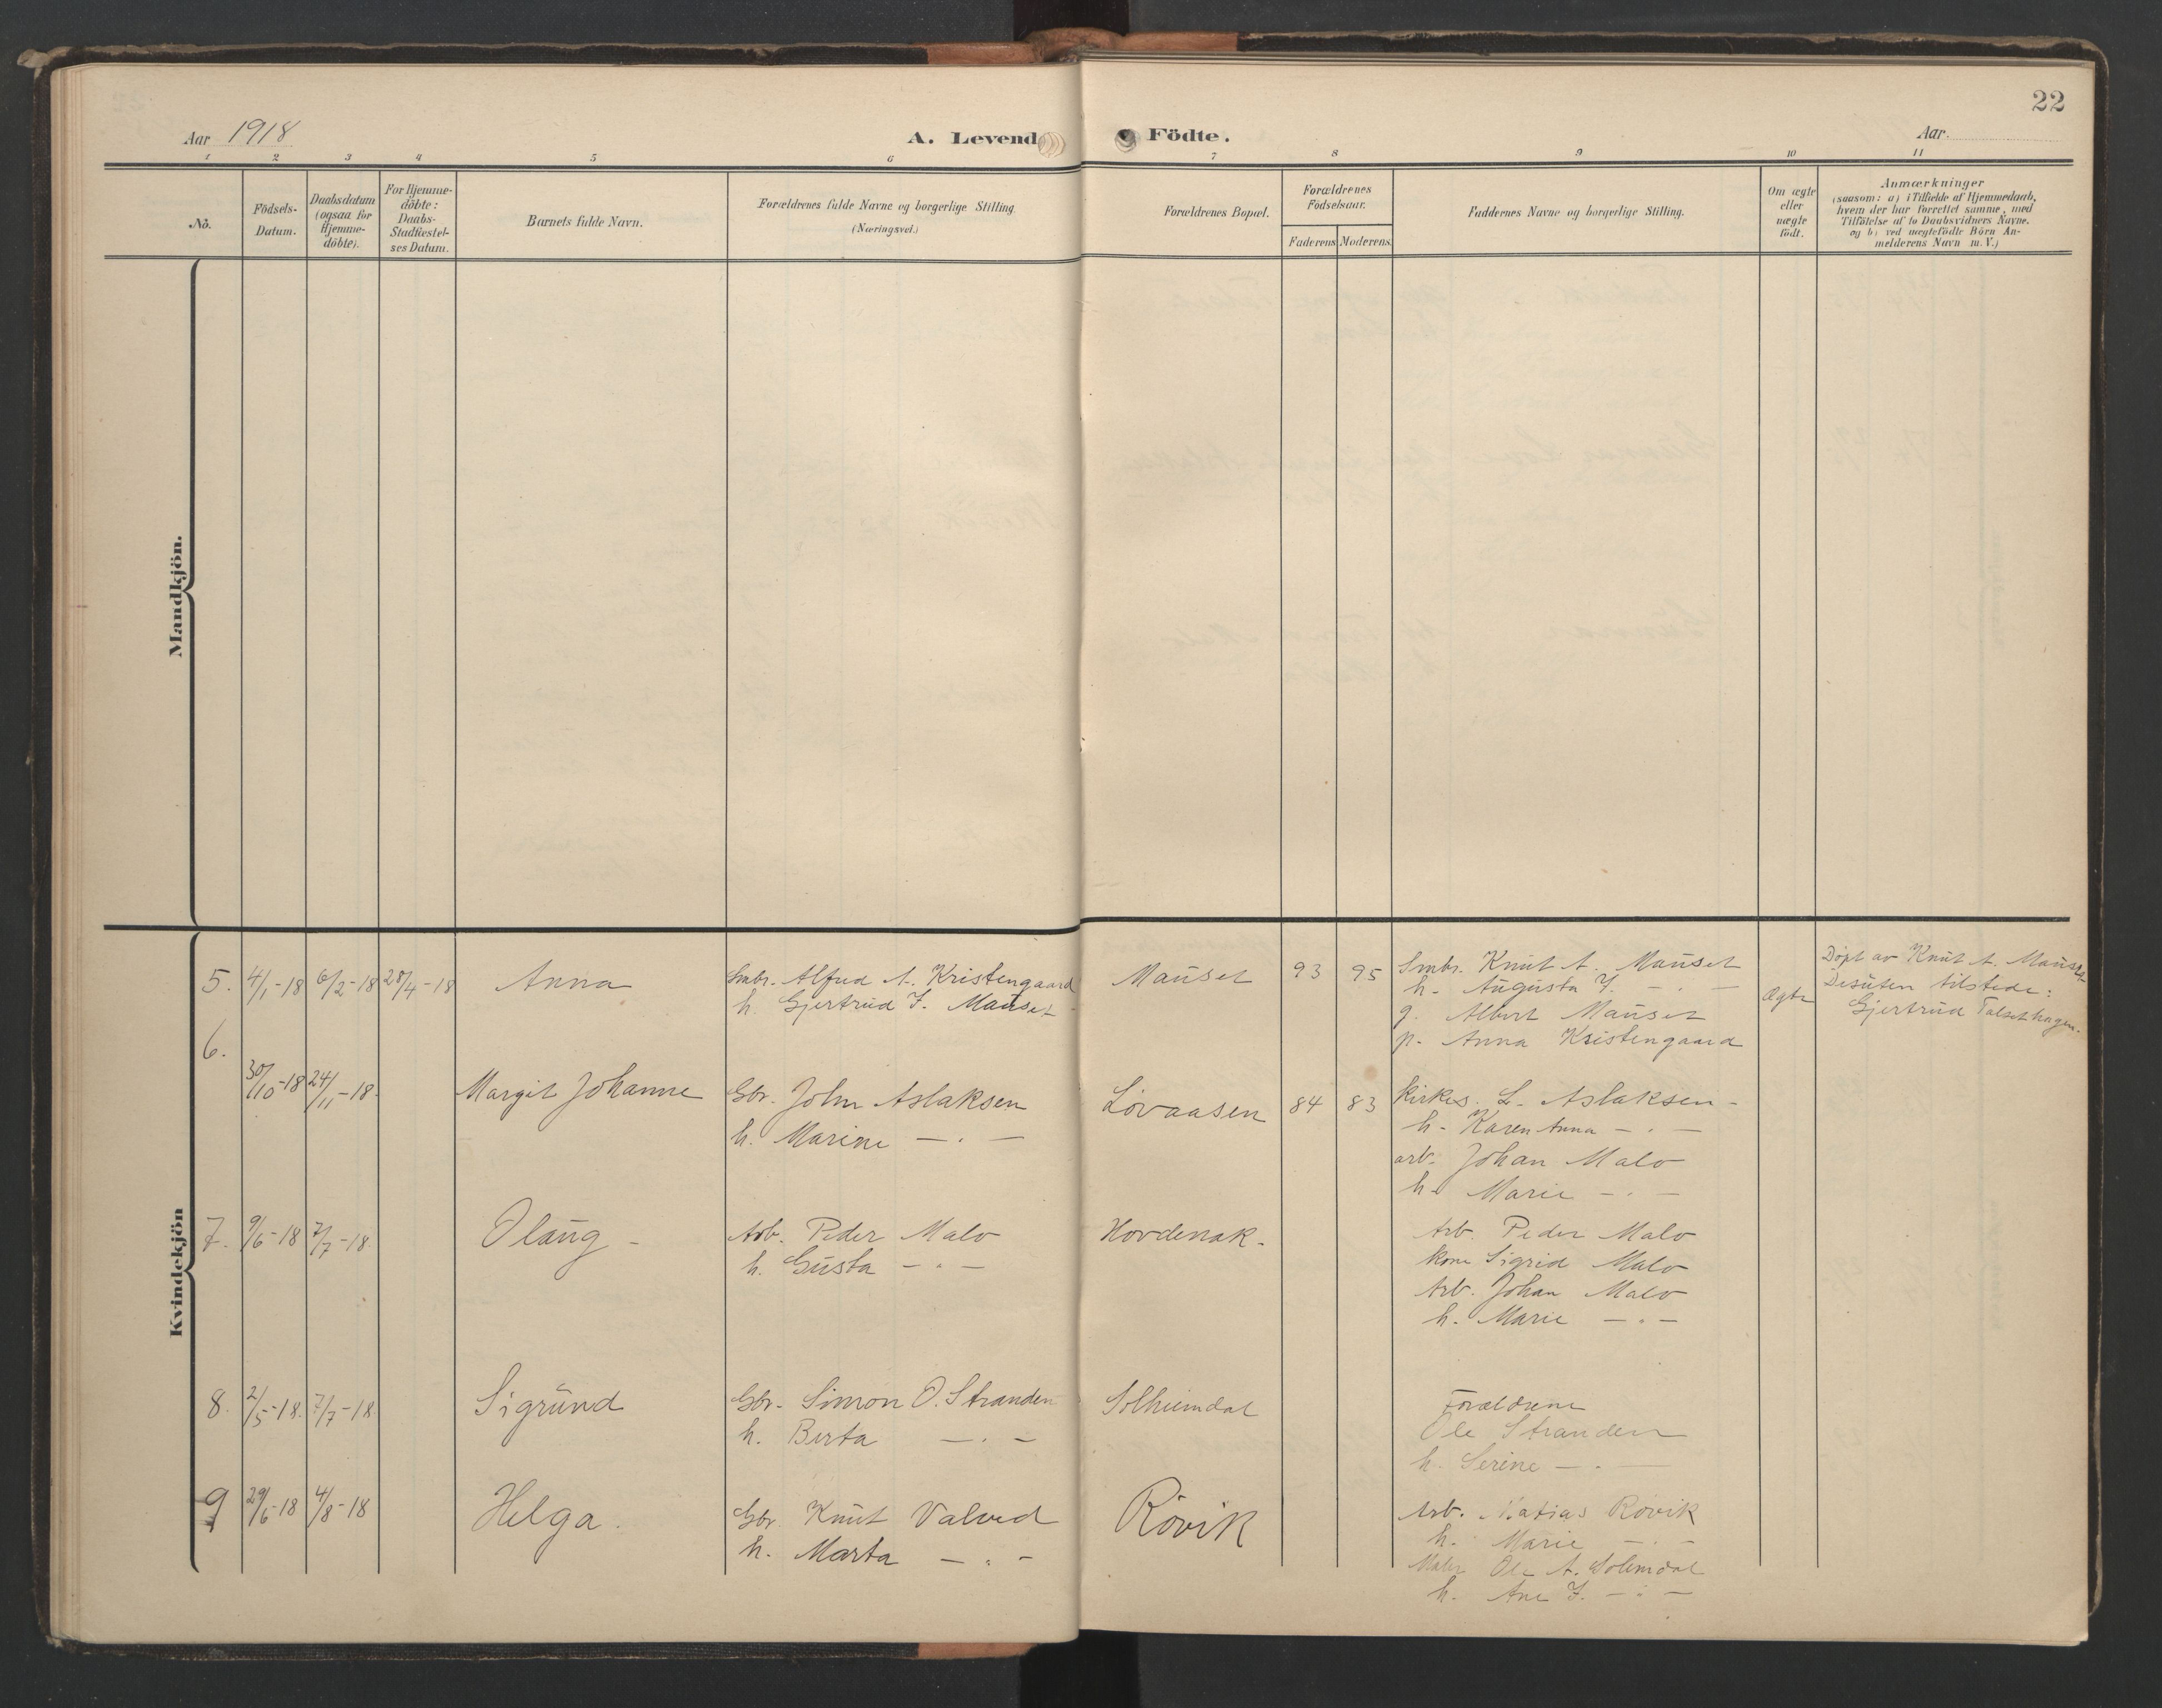 22
Aar 1918
A. Levend
Födte.
Aar
1 2 3 4 5 6 7 8 9 10 11
No.
Födsels-
Datum.
Daabsdatum
(ogsaa for
Hjemme-
döbte).
For Hjemme-
döbte:
Daabs-
Stadfæstel-
ses Datum.
Barnets fulde Navn.
Forældrenes fulde Navne og borgerlige Stilling
(Næringsvei.)
Forældrenes Bopæl.
Forældrenes
Födselsaar.
Faderens Moderens
Faddernes Navne og borgerlige Stilling.
Om ægte
eller
uægte
födt.
Anmærkninger
(saasom: a) i Tilfælde af Hjemmedaab,
hvem der har forrettet samme, med
Tilföielse af to Daabsvidners Navne.
og b) ved uægtefödte Börn An-
melderens Navn m. V.)
Mandkjön.
Kvindekjön
5. 4/1-18 6/2-18 28/4-18
Anna
Smbr. Alfred A. Kristengaard
h. Gjertrud J. Mauset
Mauset
93 95
Smbr. Knut A. Mauset
h. Augusta J. - . -
g. Albert Mauset
p. Anna Kristengaard
Ægte
Döpt av Knut A. Mauset
Desuten tilstede:
Gjertrud Talsethagen.
6.
30/10-18 24/11-18.
Margit Johanne
Gbr. John Aslaksen
h. Marine - . -
Lövaasen
84 83
Kirkes. L. Aslaksen -
h. Karen Anna - . -
arb. Johan Malo
h. Marie - . -
7. 9/6-18 7/7-18
Olaug -
Arb. Peder Malo
h. Gusta - . -
Hovdenak.
Arb. Peder Malo
kone Sigrid Malo
Arb. Johan Malo
h. Marie - . -
8. 2/5-18. 7/7-18.
Sigrund
Gbr. Simon O. Stranden
h. Berta - . -
Solheimdal
Forældrene
Ole Stranden
h. Serine - . -
9 29/6-18 4/8-18
Helga.
Gbr. Knut Valved
h. Marta - . -
Rövik
Arb. Matias Rövik
h. Marie - . -
Ole A. Solemdal
h. Ane J. - . -